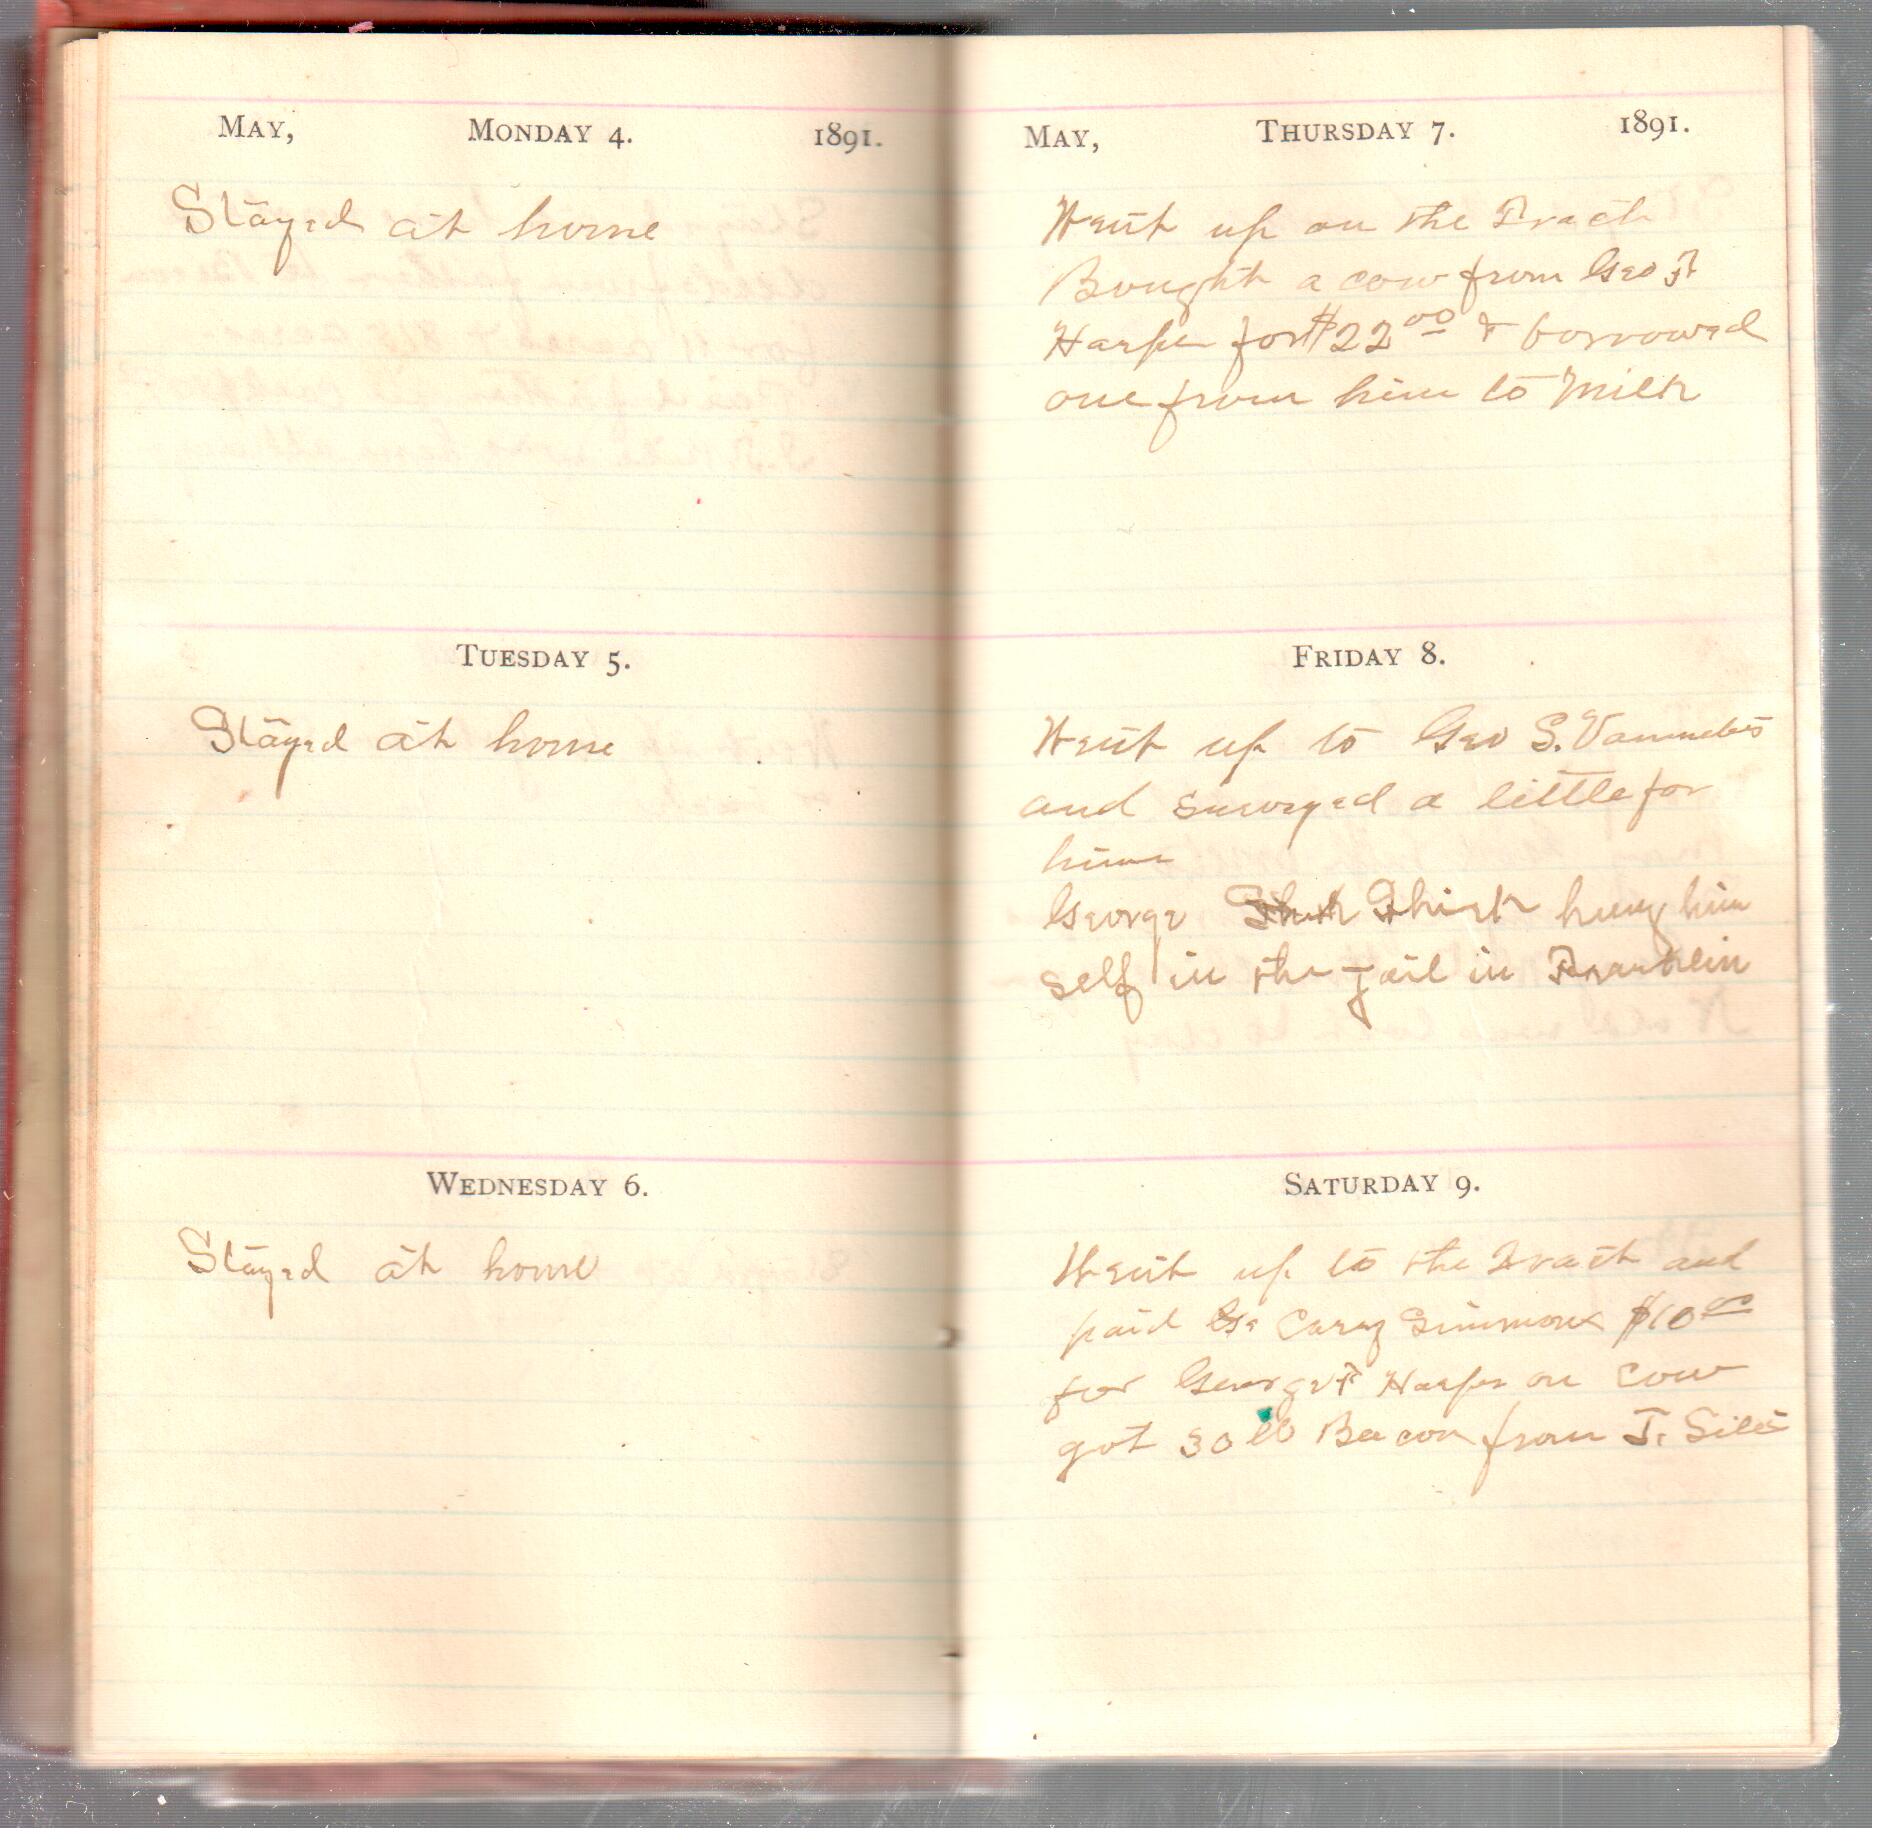 MAY, MONDAY 4. 1891.
Stayed at home
TUESDAY 5.
Stayed at home
WEDNESDAY 6.
Stayed at home
MAY, THURSDAY 7. 1891.
Went up on the Tract
Bought a cow from Geo F
Harper for $22 00 & borrowed
one from him to Milk
FRIDAY 8.
Went up to Geo S.
and surveyed a little for
him
George hung him
self in the Jail in Franklin
SATURDAY 9.
Went up to the Tract and
paid Carry Simmons $10
for George F Harper on cow
got 30 lb Bacon from J.